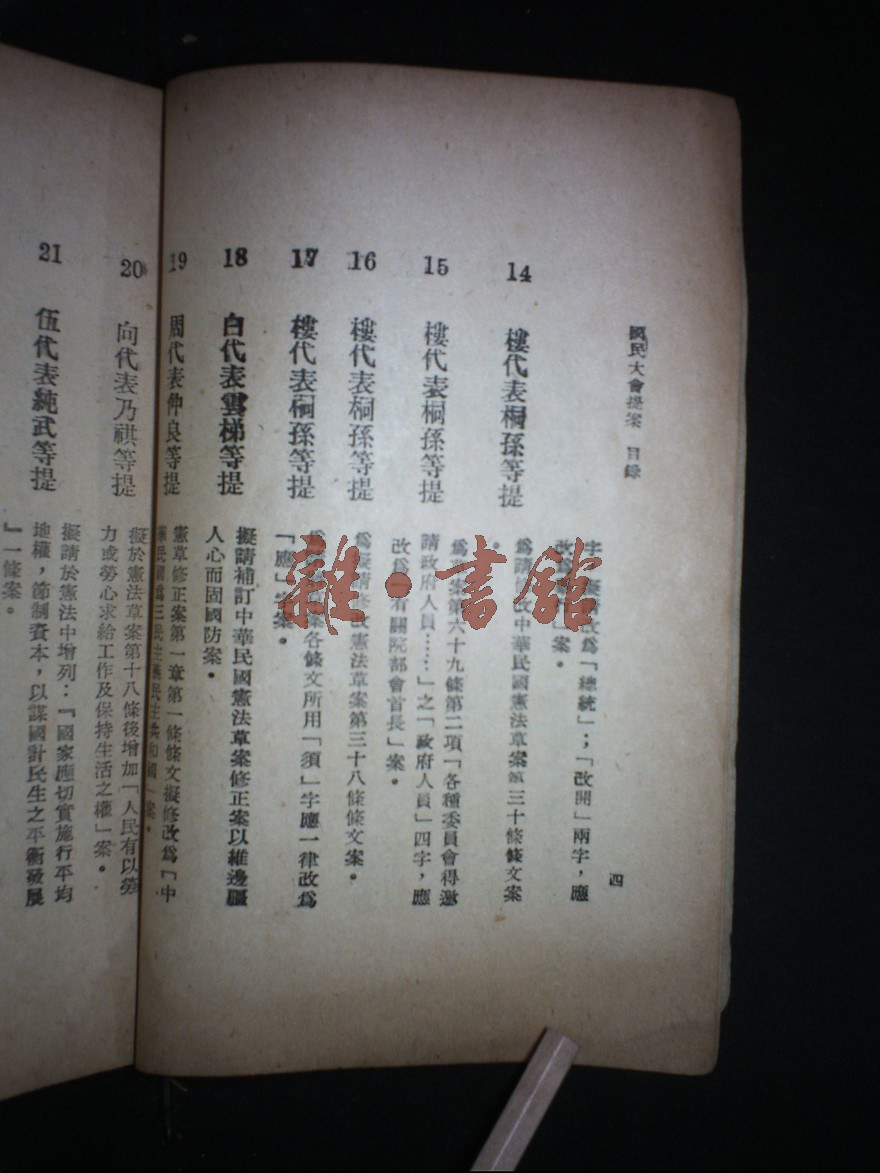 國民大會提案 目錄
四
改爲「總統」；「改開」兩字，應
案。
14 樓代表桐孫等提
爲請修改中華民國憲法草案第三十條條文案
。
15 樓代表桐孫等提
爲憲草案第六十九條第二項「各種委員會得邀
請政府人員……」之「政府人員」四字，應
改爲「有關院部會首長」案。
16 樓代表桐孫等提
爲擬請修改憲法草案第三十八條條文案。
17 樓代表桐孫等提
案各條文所用「須」字應一律改爲
「應」字案。
18 白代表雲梯等提
擬請補訂中華民國憲法草案修正案以維邊疆
人心而固國防案。
19 周代表仲良等提
憲草修正案第一章第一條條文擬修改爲「中
華民國爲三民主義民主共和國」案。
20 向代表乃祺等提
擬於憲法草案第十八條後增加「人民有以勞
力或勞心求給工作及保持生活之權」案。
21 伍代表純武等提
擬請於憲法中增列：『國家應切實施行平均
地權，節制資本，以謀國計民生之平衡發展
』一條案。
雜·書館